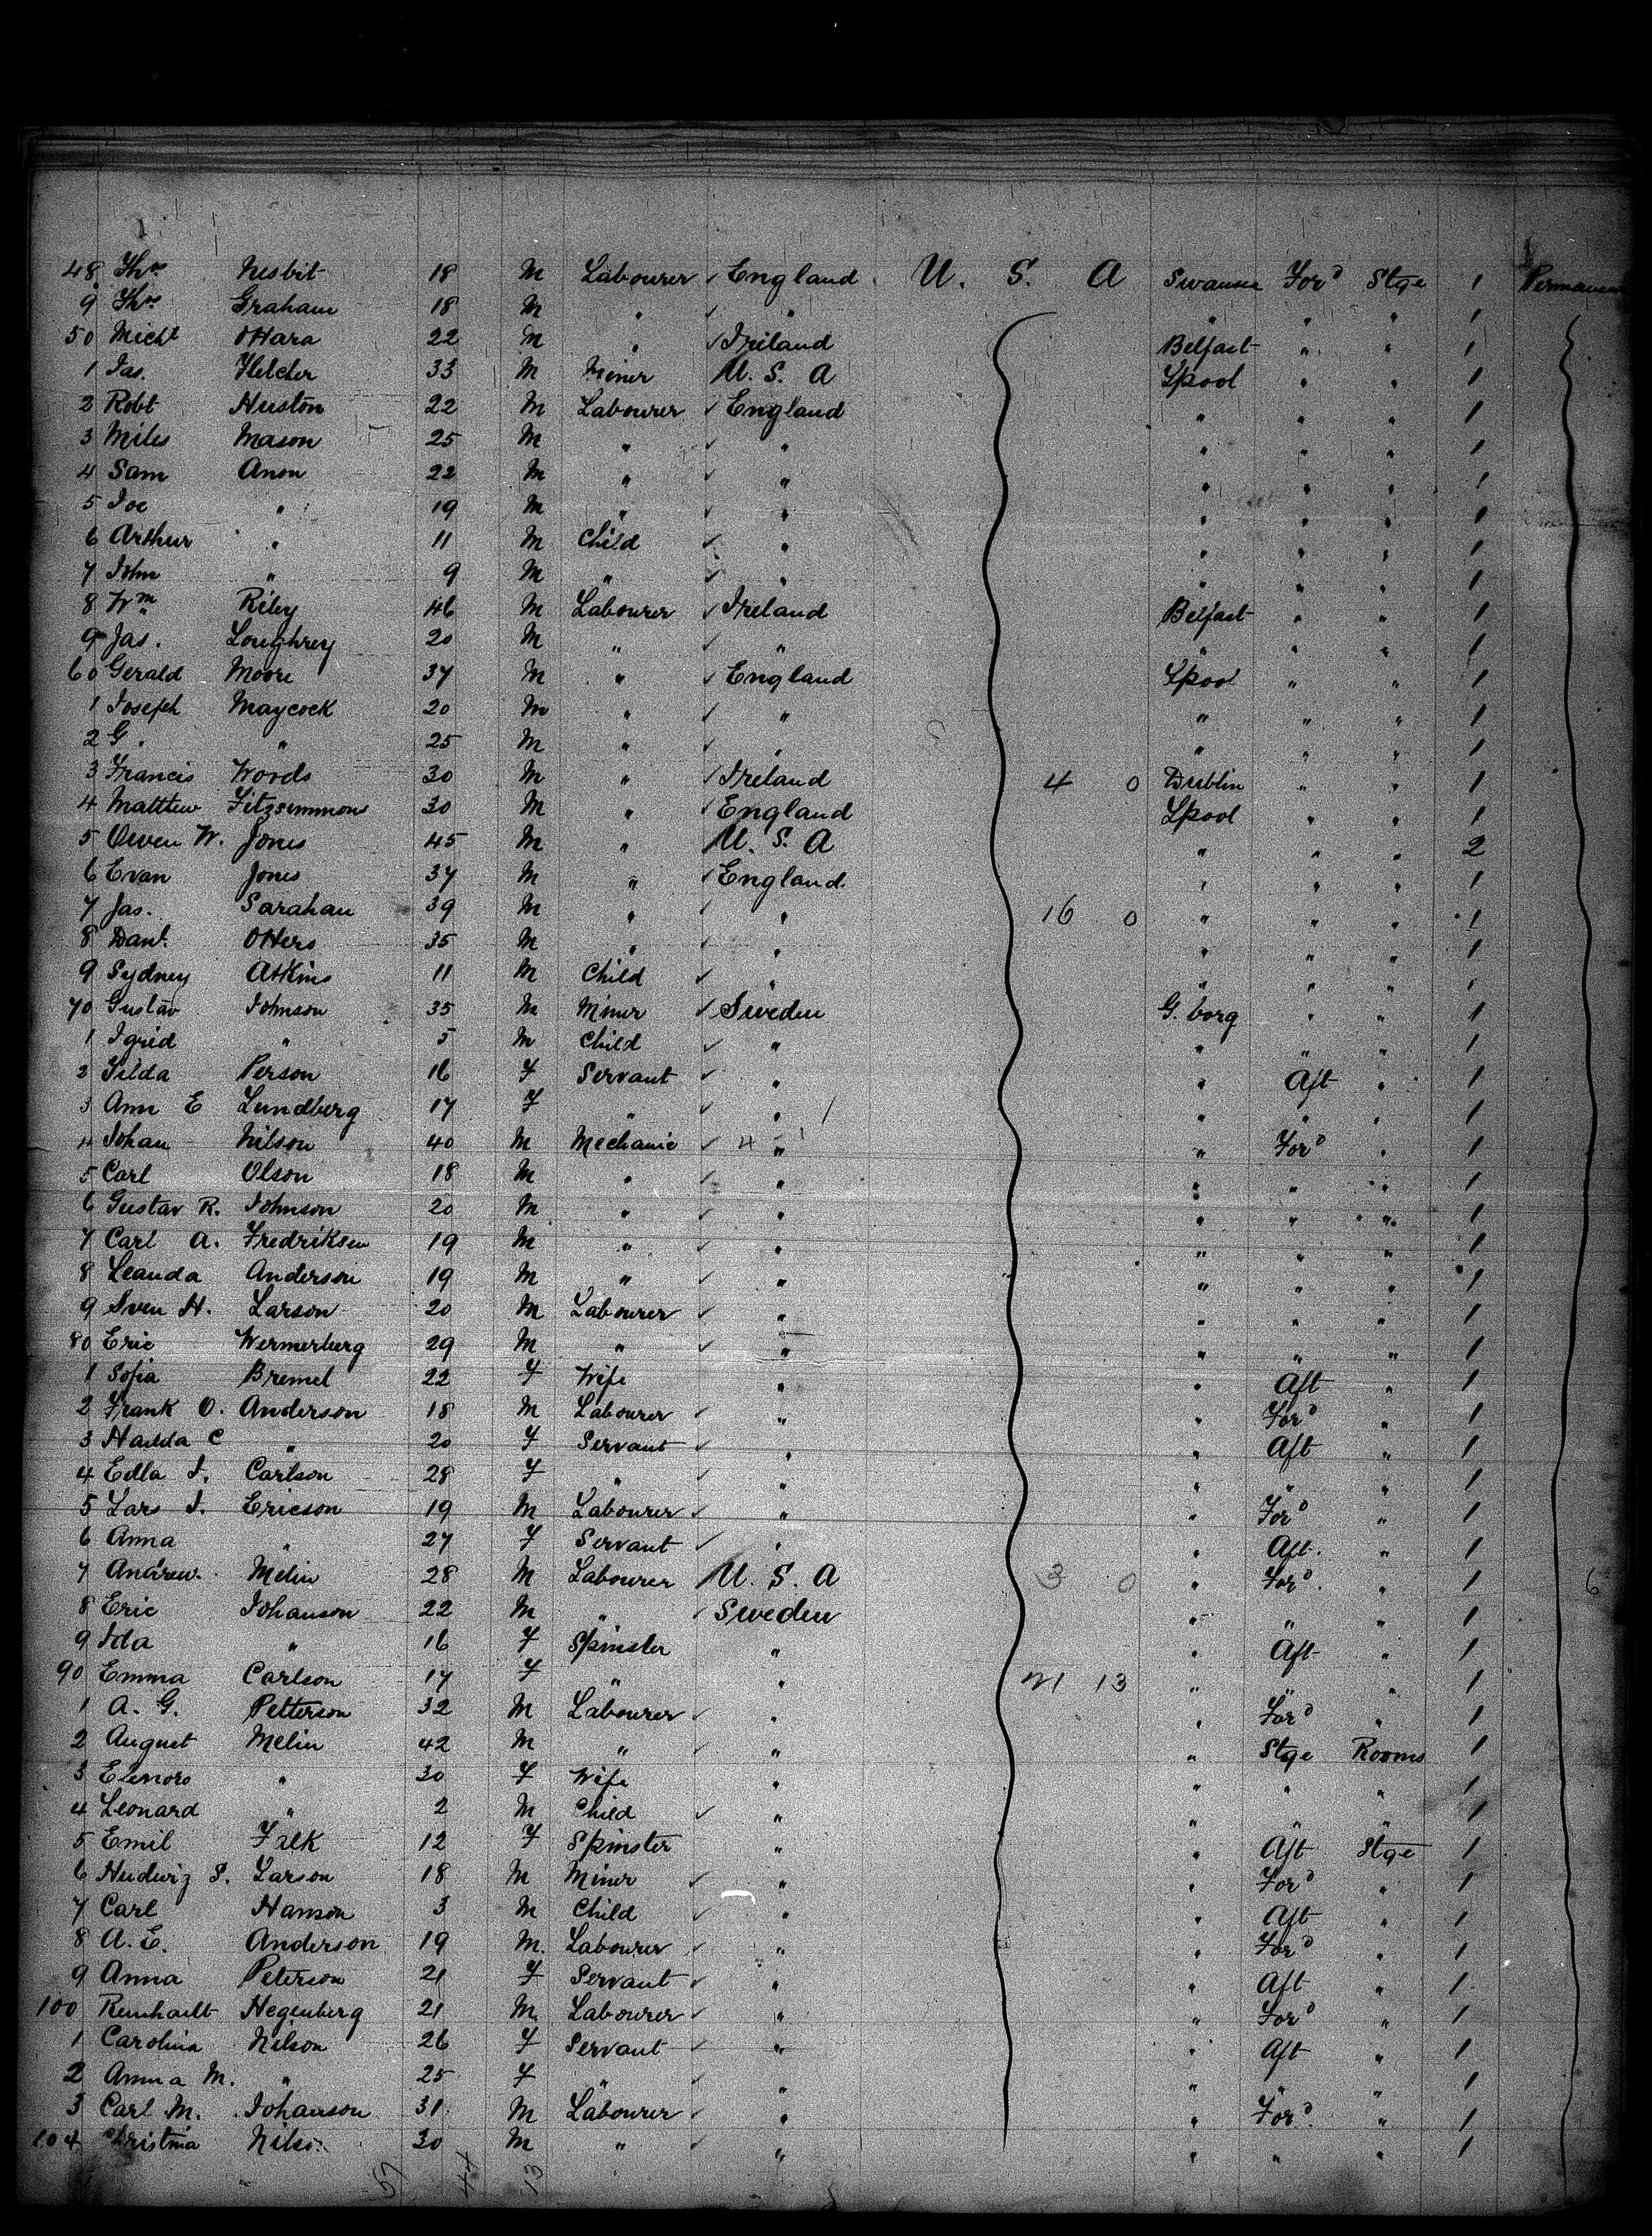 48 Thos Nesbit 18 M Labourer ✓ England U. S. A Swansea Ford Stge 1 Permanen
9 Thos Graham 18 M " ✓ " " " " 1
50 Michl OHara 22 M " ✓ Ireland Belfast " " 1
1 Jas. Fletcher 33 M Miner U. S. A Lpool " " 1
2 Robt Huston 22 M Labourer ✓ England " " " 1
3 Miles Mason 25 M " ✓ " " " " 1
4 Sam Anon 22 M " ✓ " " " " 1
5 Joe " 19 M " ✓ " " " " 1
6 Arthur " 11 M Child ✓ " " " " 1
7 John " 9 M " ✓ " " " " 1
8 Wm Riley 46 M Labourer ✓ Ireland Belfast " " 1
9 Jas. Loughrey 20 M " ✓ " " " " 1
60 Gerald Moore 37 M " ✓ England Lpool " " 1
1 Joseph Maycock 20 M " ✓ " " " " 1
2 G. " 25 M " ✓ " " " " 1
3 Francis Woods 30 M " ✓ Ireland 4 0 Dublin " " 1
4 Matthew Fitzsimmons 30 M " ✓ England Lpool " " 1
5 Owen W. Jones 45 M " U. S. A " " " 2
6 Evan Jones 37 M " ✓ England " " " 1
7 Jas. Sarahan 39 M " ✓ " 16 0 " " " 1
8 Danl. OHers 35 M " ✓ " " " " 1
9 Sydney Atkins 11 M Child ✓ " " " " 1
70 Gustav Johnson 35 M Miner ✓ Sweden G. borg " " 1
1 Igrid " 5 M Child ✓ " " " " 1
2 Tilda Person 16 F Servant ✓ " " Aft " 1
3 Ann E Lundberg 17 F " ✓ " " " " 1
4 Johan Nilson 40 M Mechanic ✓ " " Ford " 1
5 Carl Olson 18 M " ✓ " " " " 1
6 Gustav R. Johnson 20 M " ✓ " " " " 1
7 Carl A. Fredriksen 19 M " ✓ " " " " 1
8 Leanda Anderson 19 M " ✓ " " " " 1
9 Sven H. Larson 20 M Labourer ✓ " " " " 1
80 Eric Wermerberg 29 M " ✓ " " " " 1
1 Sofia Bremel 22 F Wife " " Aft " 1
2 Frank O. Anderson 18 M Labourer ✓ " " Ford " 1
3 Hailda C " 20 F Servant ✓ " " Aft " 1
4 Edla J. Carlson 28 F " ✓ " " " " 1
5 Lars J. Ericson 19 M Labourer ✓ " " Ford " 1
6 Anna " 27 F Servant ✓ " " Aft. " 1
7 Andrew. Melin 28 M Labourer U. S. A 3 0 " Ford. " 1 6
8 Eric Johanson 22 M " ✓ Sweden " " " 1
9 Ida " 16 F Spinster " " Aft " 1
90 Emma Carlson 17 F " " 21 13 " " " 1
1 A. G. Petterson 32 M Labourer ✓ " " Ford " 1
2 August Melin 42 M " ✓ " " Stge Rooms 1
3 Elenora " 30 F Wife " " " " 1
4 Leonard " 2 M Child ✓ " " " " 1
5 Emil Falk 12 F Spinster " " Aft Stge 1
6 Hudwig S. Larson 18 M Miner ✓ " " Ford " 1
7 Carl Hanson 3 M Child ✓ " " Aft " 1
8 A. E. Anderson 19 M. Labourer ✓ " " Ford " 1
9 Anna Peterson 21 F Servant ✓ " " Aft " 1
100 Reinhardt Hegenberg 21 M. Labourer ✓ " " Ford " 1
1 Carolina Nilson 26 F Servant ✓ " " Aft " 1
2 Anna M. " 25 F " ✓ " " " " 1
3 Carl M. Johanson 31 M Labourer ✓ " " Ford. " 1
104 Christina 30 M " ✓ " " " " 1
57 44 13